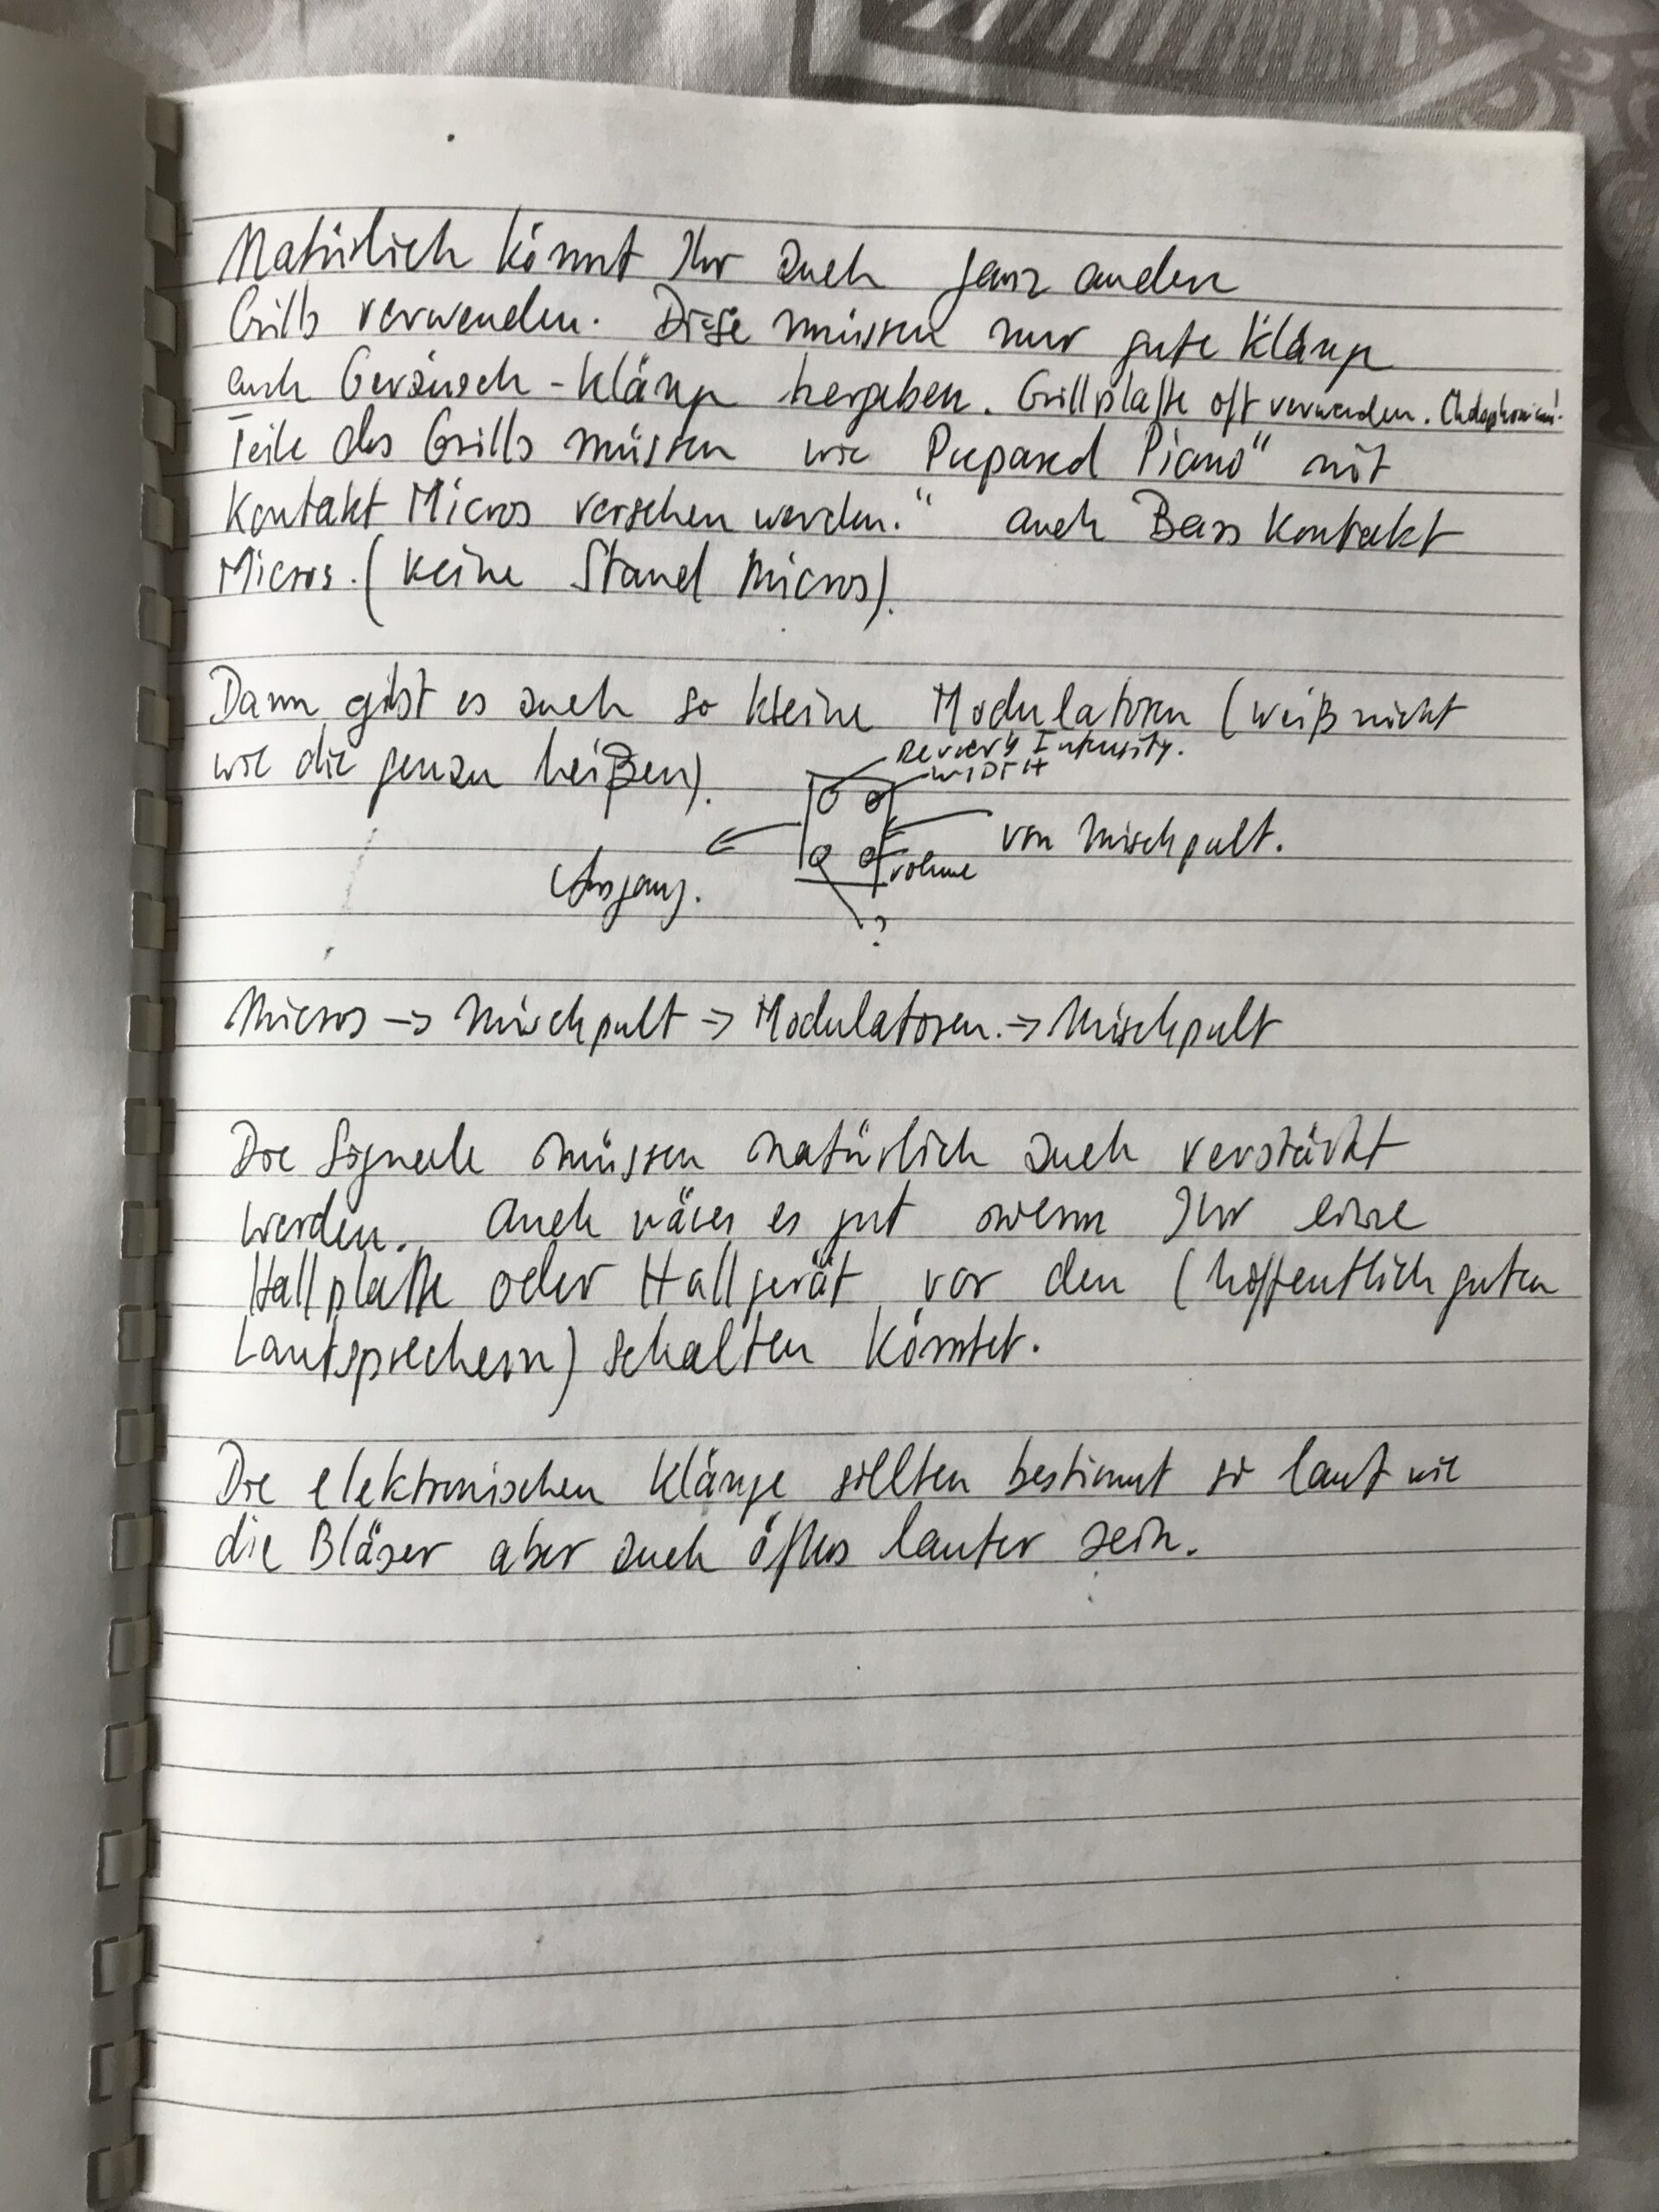 Natürlich könnt Ihr auch ganz andere
Grills verwenden. Diese müssen nur gute Klänge
auch Geräusch-Klänge hergeben. Grillplatte oft verwenden.
Teile des Grills müssen wie Prepared Piano" mit
Kontakt Micros versehen werden." auch Bass Kontakt
Micros. (keine Stand Micros).
Dann gibt es auch so kleine Modulatoren (weiß nicht
wie die genau heißen).
Intensity.
WIDTH
von Mischpult.
Volume
Ausgang.
?
Micros -> Mischpult -> Modulatoren. -> Mischpult
Die Signale müssen natürlich auch verstärkt
werden. Auch wäre es gut wenn Ihr eine
Hallplatte oder Hallgerät vor den (hoffentlich guten
Lautsprechern) schalten könntet.
Die elektronischen Klänge sollten bestimmt so laut wie
die Bläser aber auch öfters lauter sein.